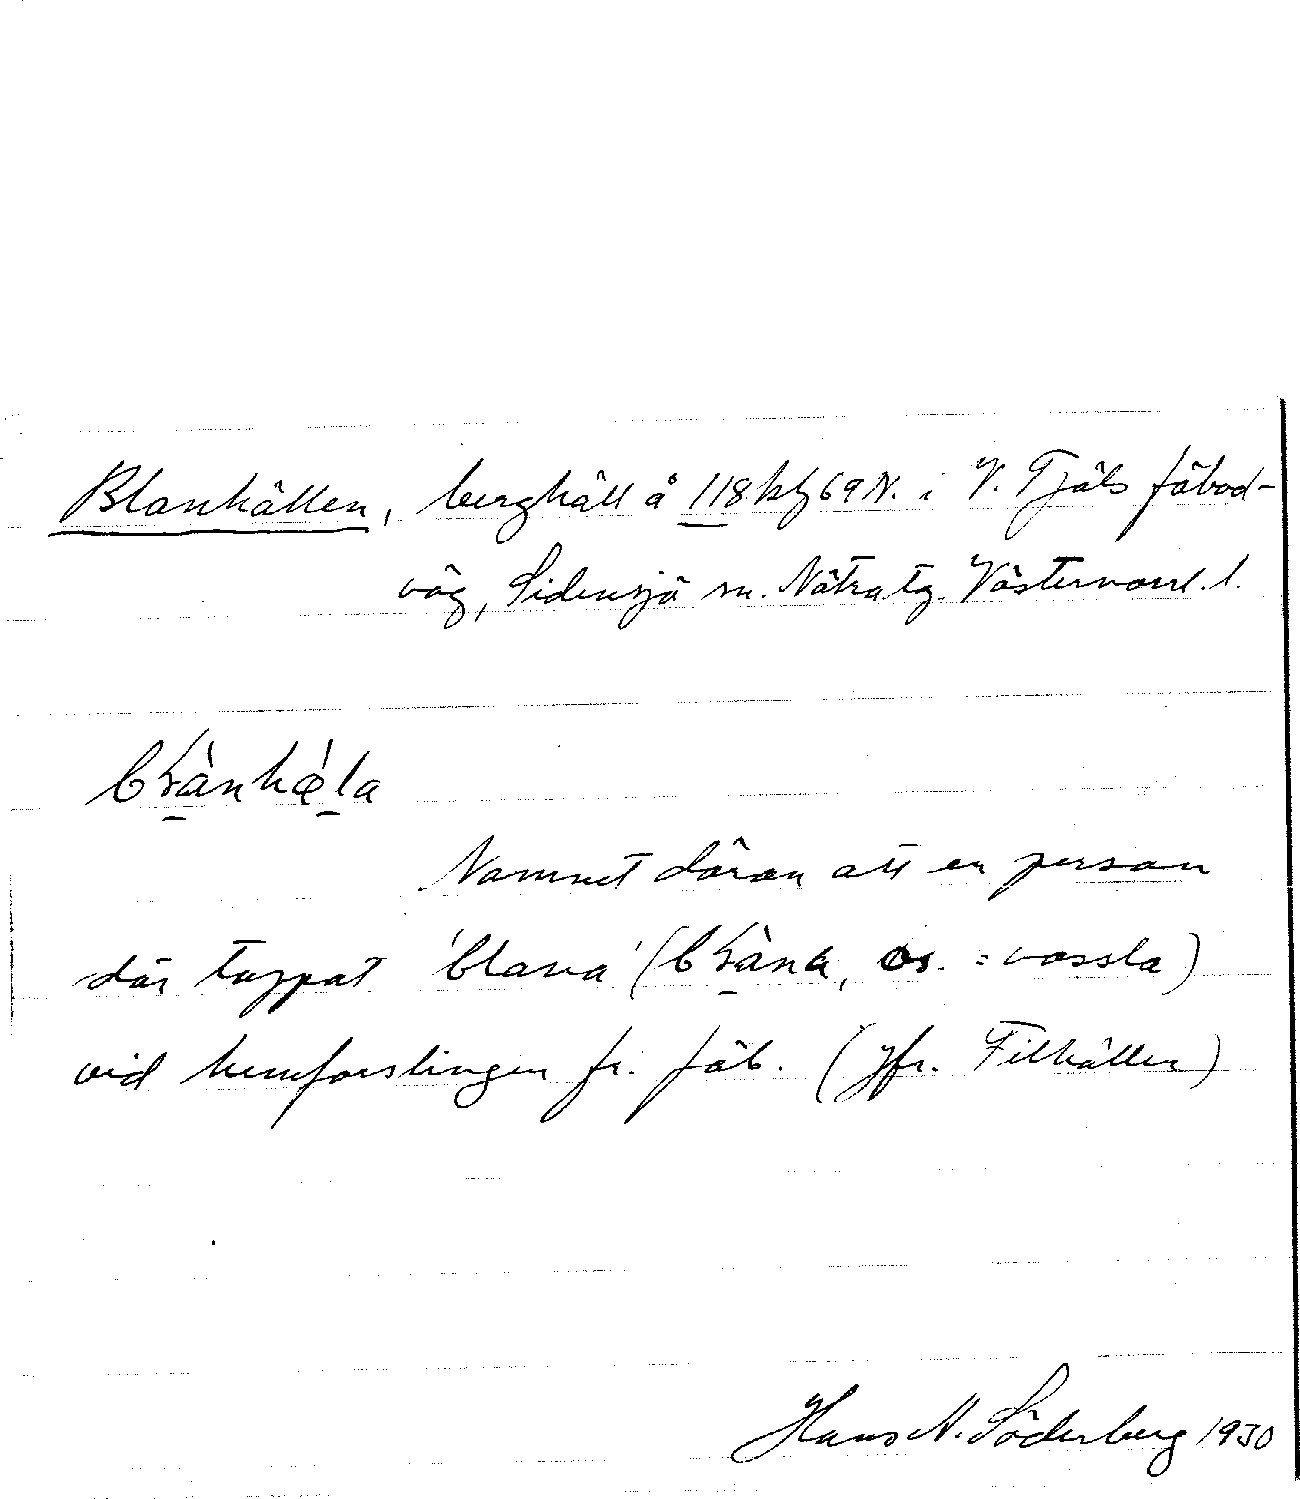 Blanhällen, berghäll å 118 kbf 69 N. i V. Tjäls fäbod-
väg, Sidensjö sn. Nätra tg. Västernorrl. l.
Namnet därav att en person
där tappat 'blana' ( os. = vassla)
vid hemforslingen fr. fäb. (Jfr. Filhällen)
Hans N. Söderberg 1930